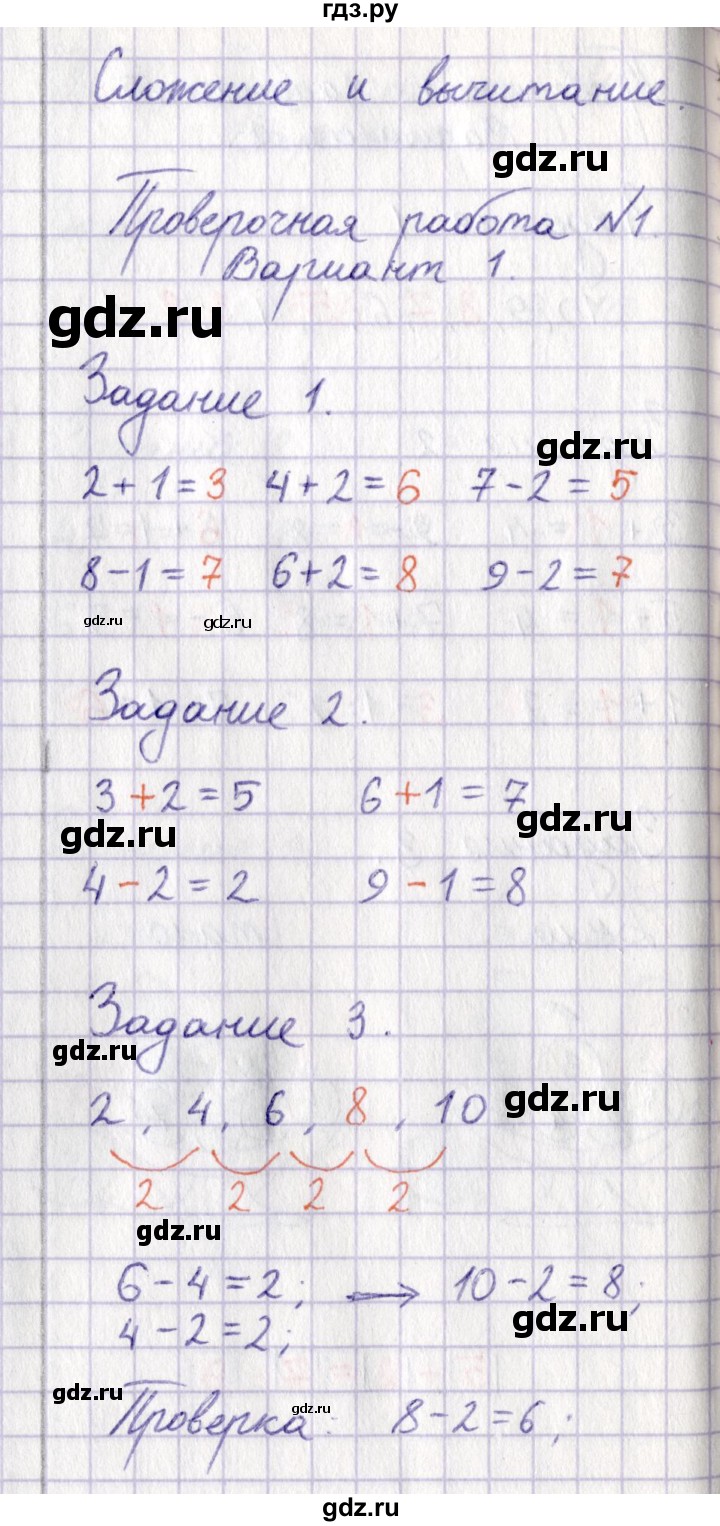 гдз.ру
Сложение и вычитание.
gdz.ru
Проверочная работа №1.
Вариант 1.
gdz.ru
Задание 1.
gdz.ru
2+1=3 4+2=6 7-2=5
8-1=7 6+2=8 9-2=7
gdz.ru gdz.ru
Задание 2.
3+2=5 6+1=7
gdz.ru gdz.ru
4-2=2 9-1=8
Задание 3.
gdz.ru
2, 4, 6, 8, 10
gdz.ru
2 2 2 2
gdz.ru
6-4=2; → 10-2=8;
gdz.ru
4-2=2;
gdz.ru gdz.ru
Проверка: 8-2=6;
gdz.ru